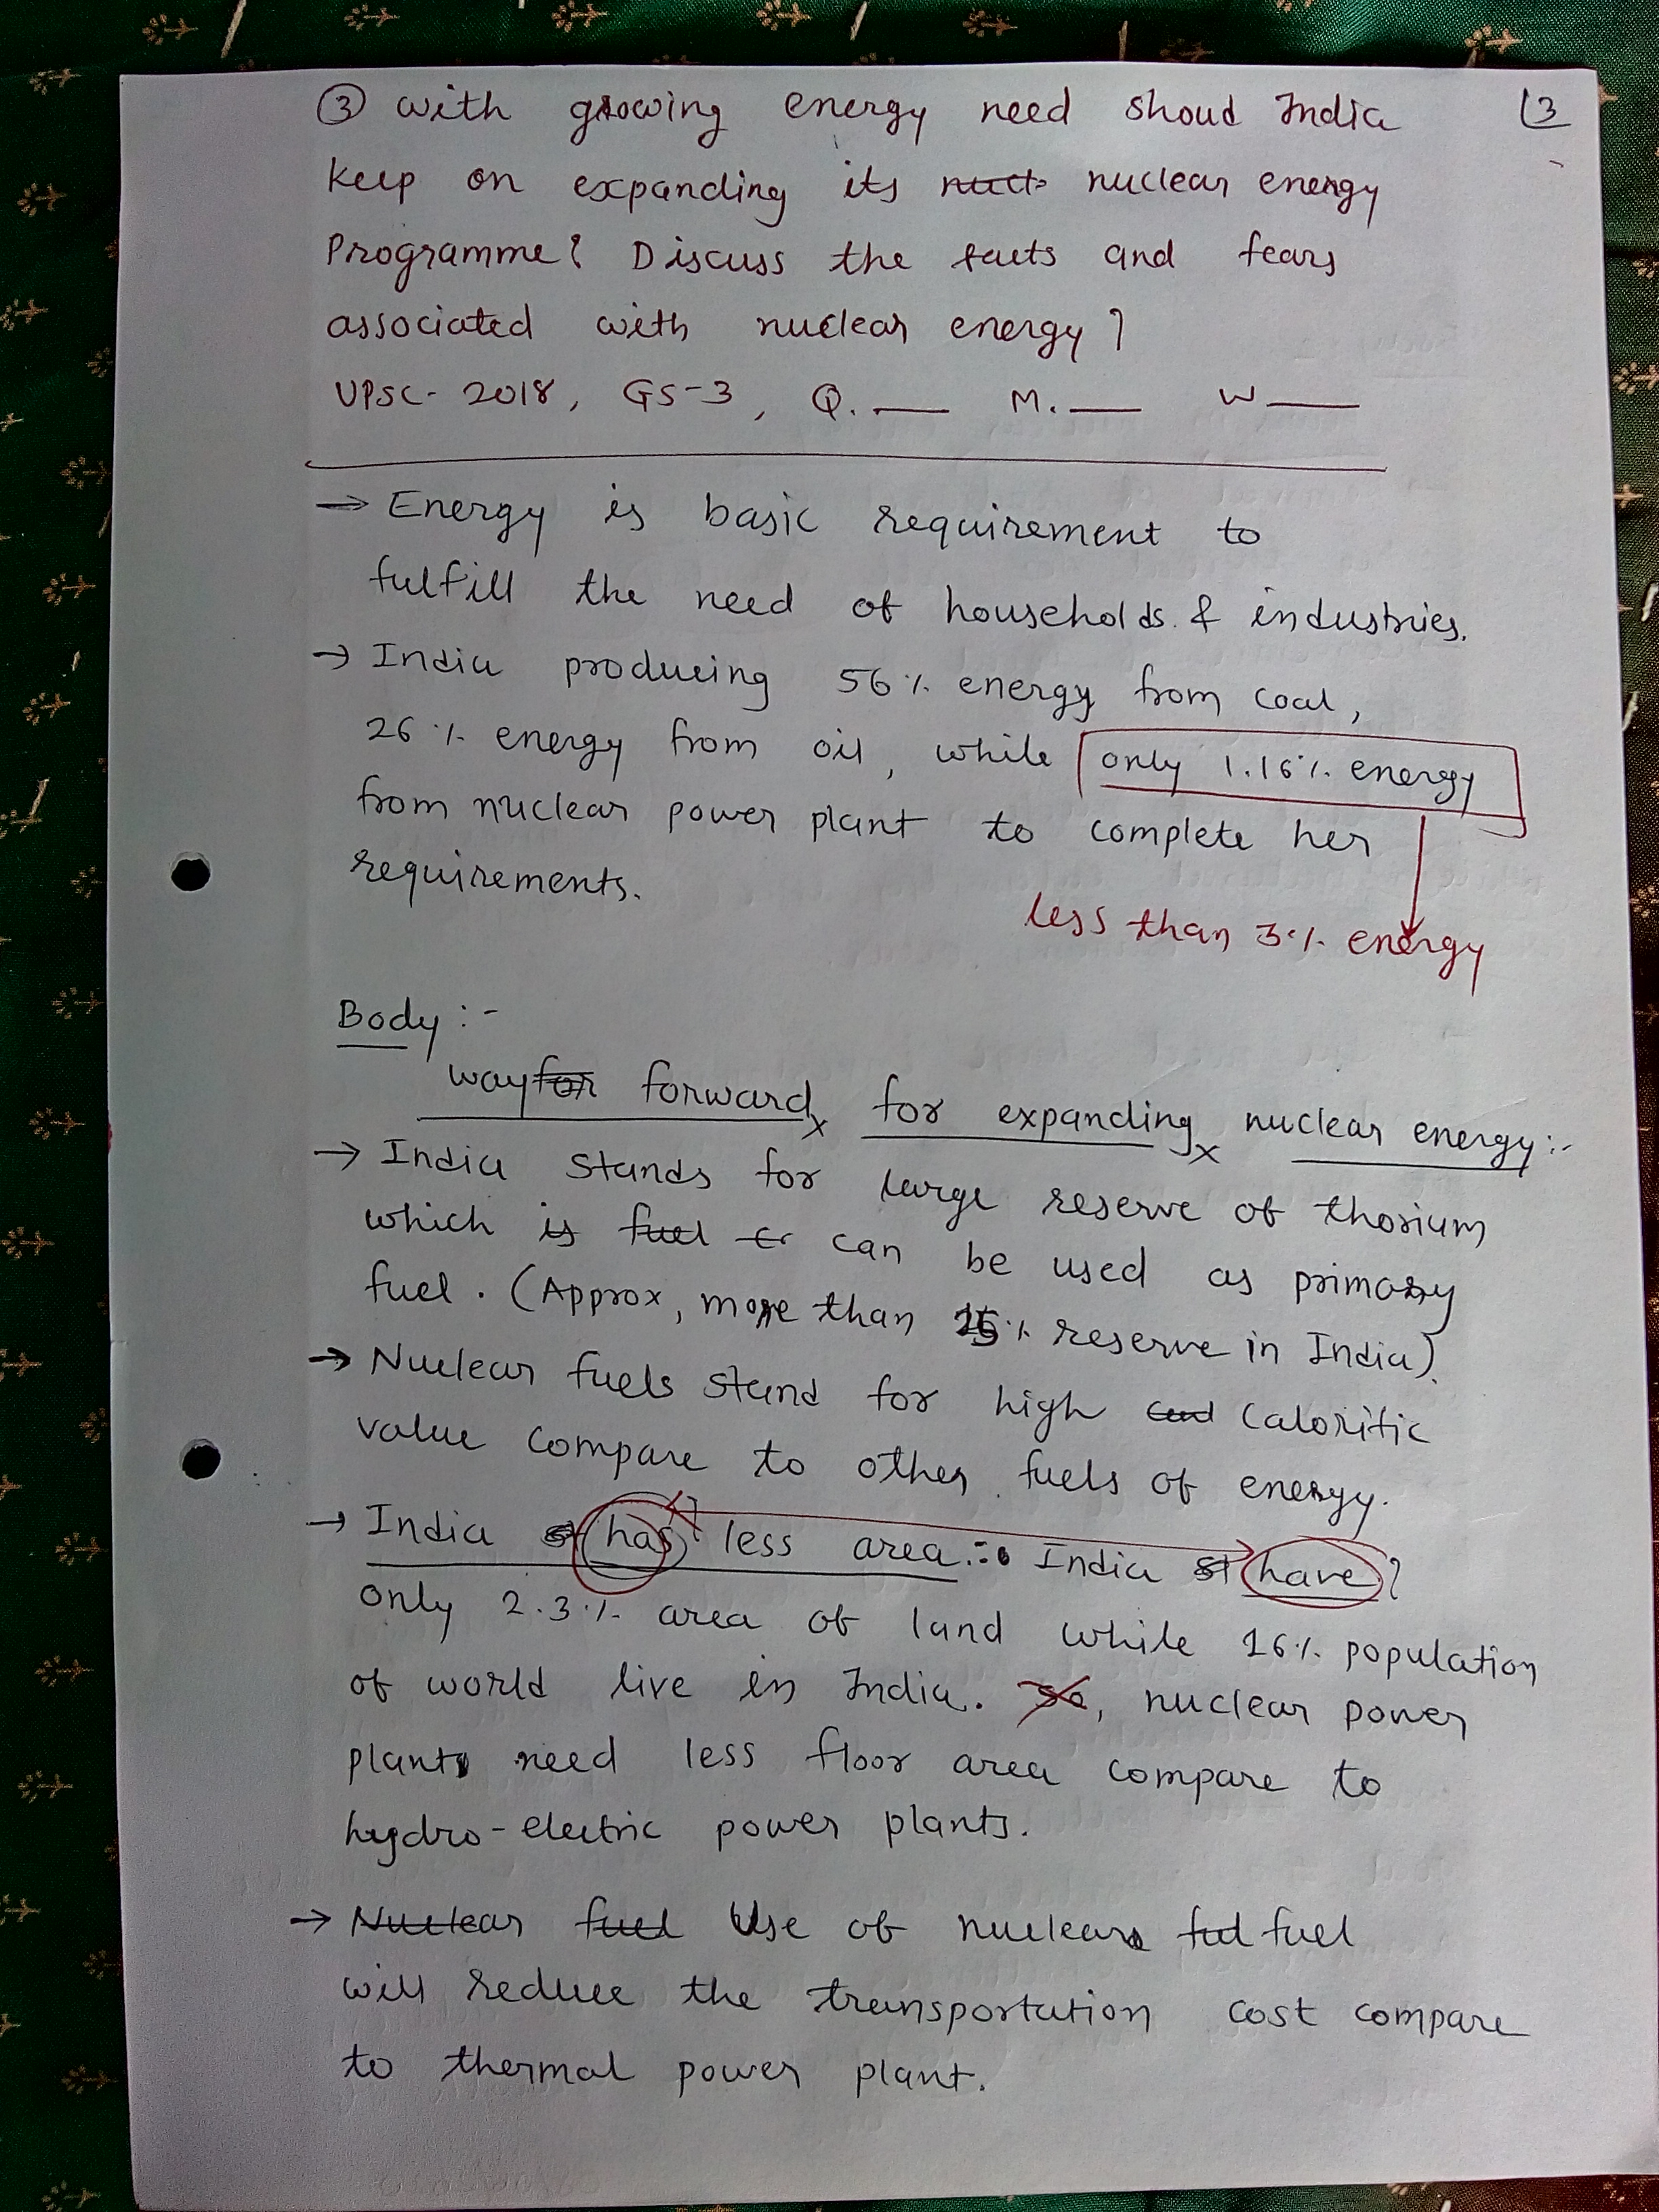 ③ with growing energy need shoud India
(3
keep on expanding its nuclear energy
Programme? Discuss the facts and fears
associated with nuclear energy?
UPSC- 2018, GS-3, Q. — M. — W —
→ Energy is basic requirement to
fulfill the need of households & industries.
→ India producing 56% energy from coal,
26% energy from oil, while only 1.16% energy
from nuclear power plant to complete her
requirements.
less than 3% energy
Body :-
way for forward for expanding nuclear energy:-
→ India stands for large reserve of thorium
which is fuel can be used as primary
fuel. (Approx, more than 25% reserve in India).
→ Nuclear fuels stand for high calorific
value compare to other fuels of energy.
→ India has less area :- India st have ?
only 2.3% area of land while 16% population
of world live in India. So, nuclear power
plants need less floor area compare to
hydro-electric power plants.
→ Nuclear fuel Use of nuclear fuel
will reduce the transportation cost compare
to thermal power plant.